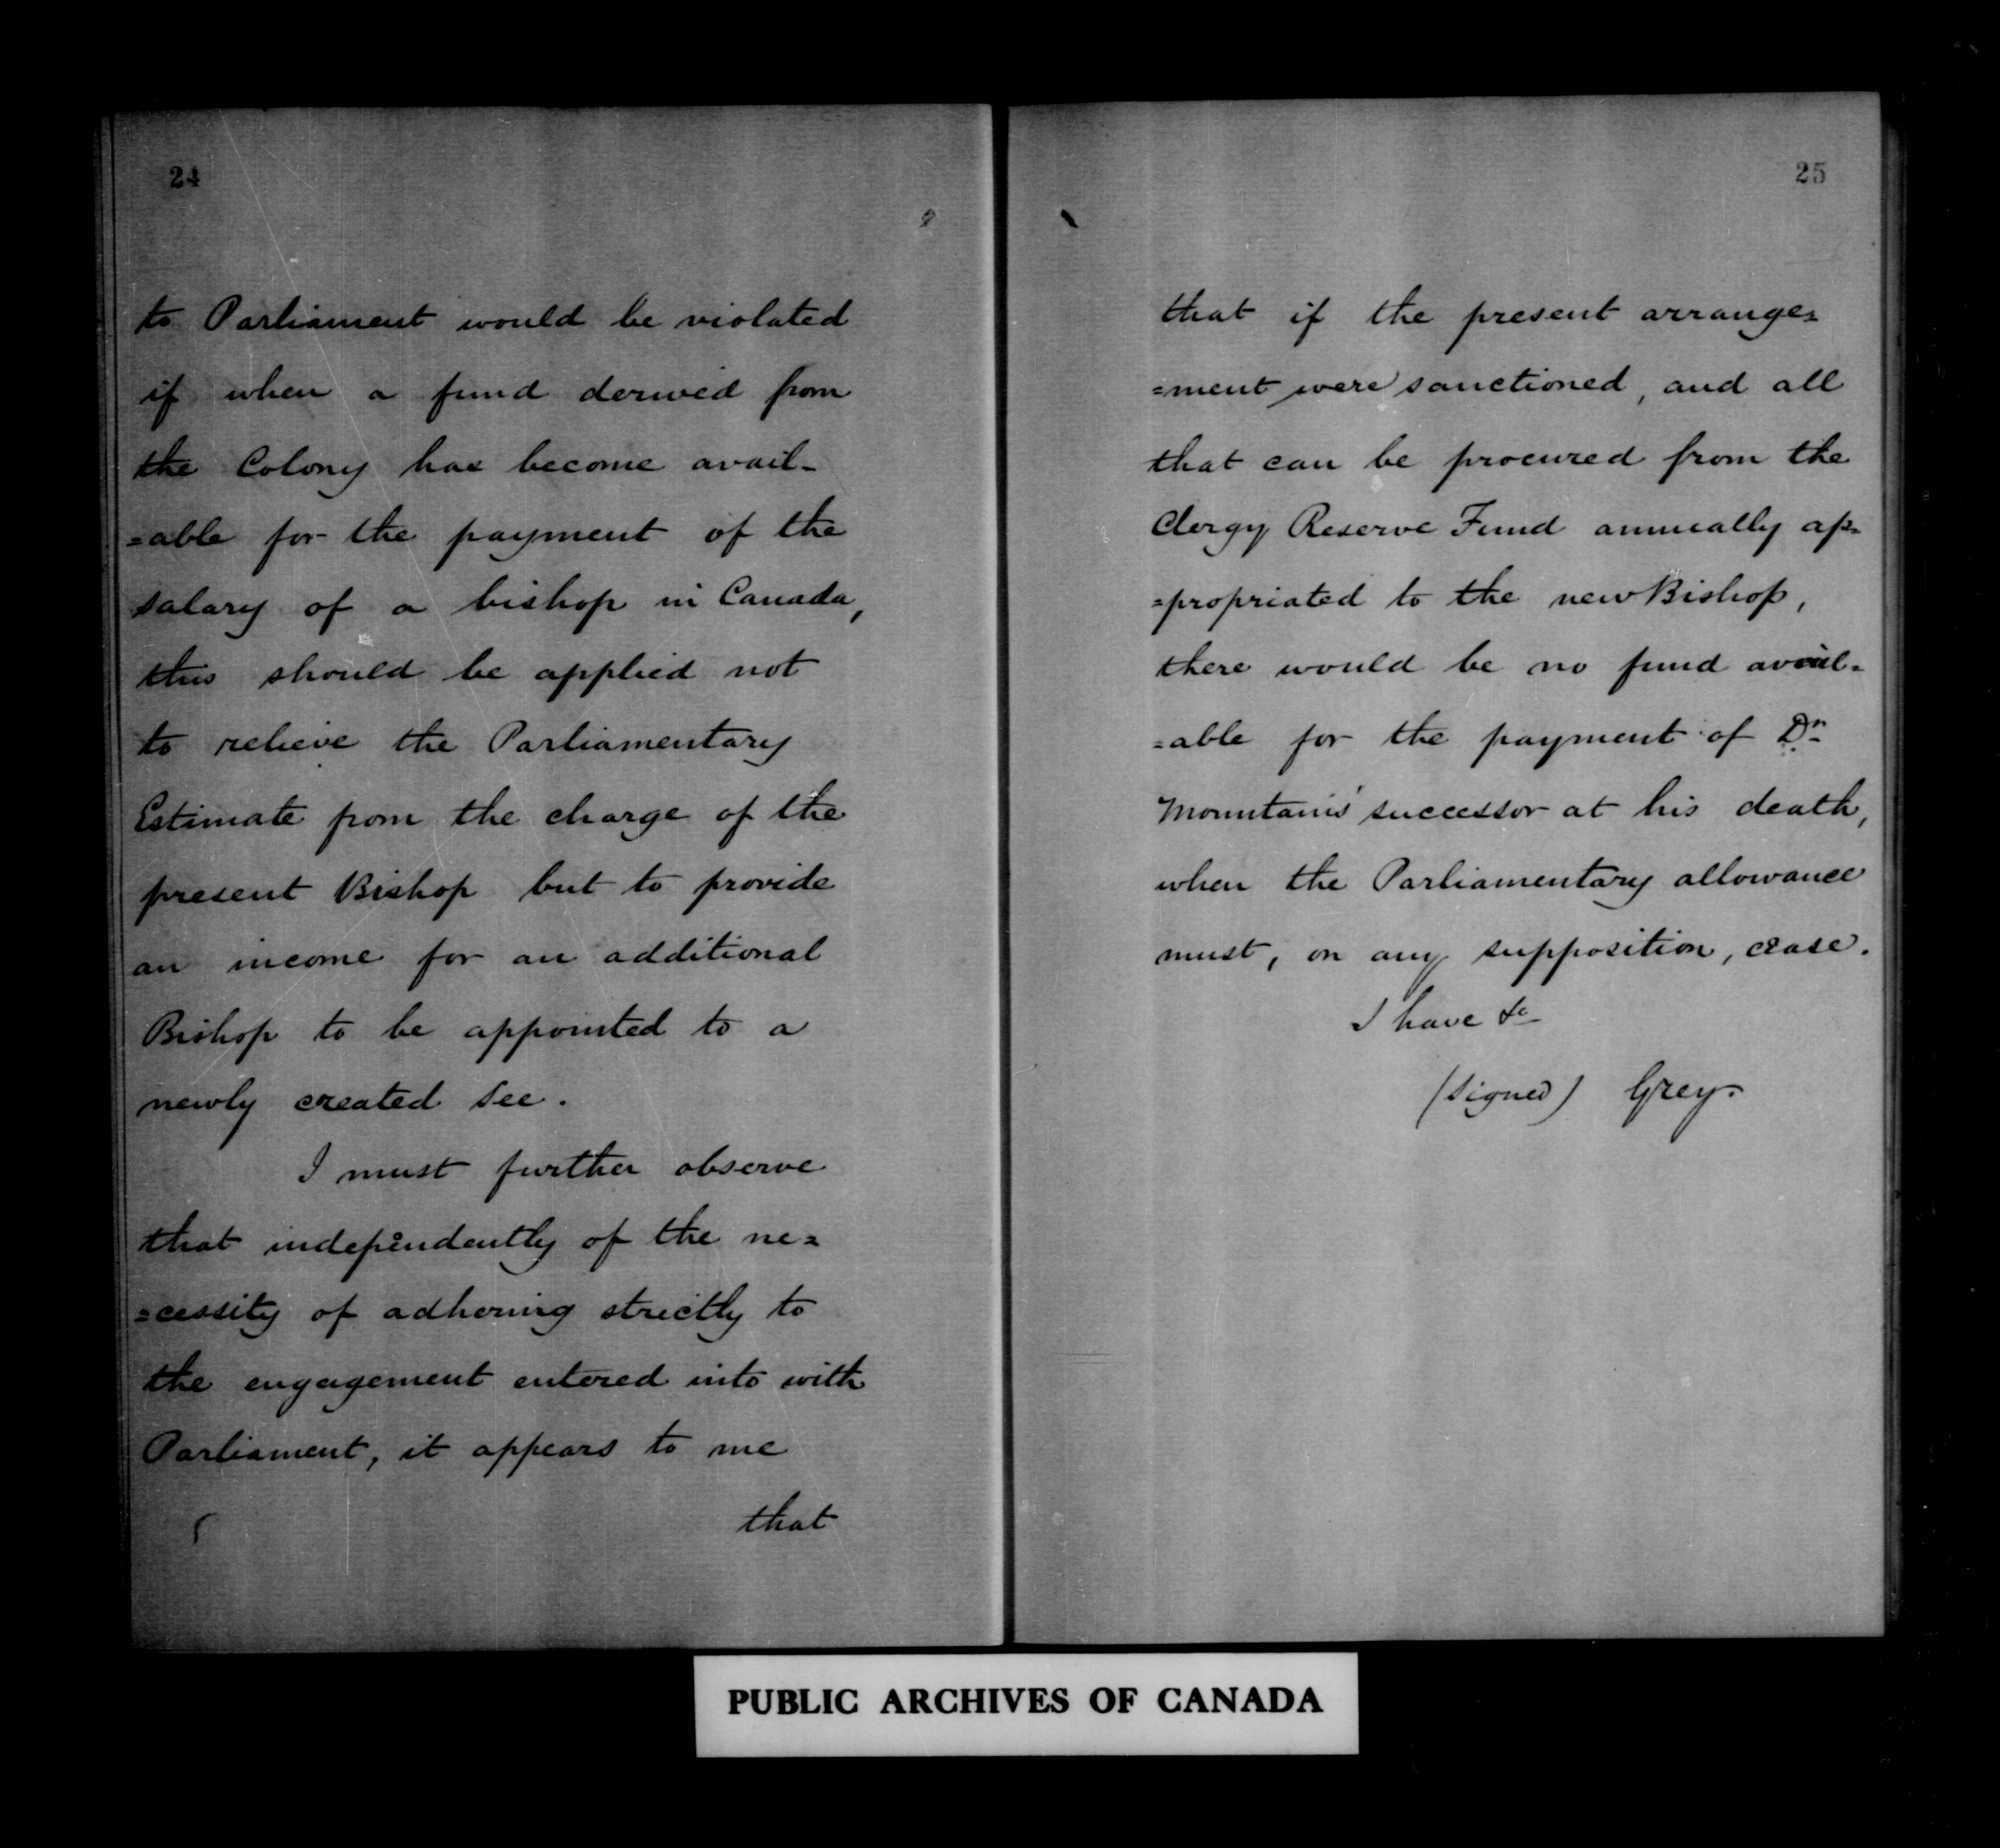 24
to Parliament would be violated
if when a fund derived from
the Colony has become avail-
=able for the payment of the
salary of a bishop in Canada,
this should be applied not
to relieve the Parliamentary
Estimate from the charge of the
present Bishop but to provide
an income for an additional
Bishop to be appointed to a
newly created See.
I must further observe
that independently of the ne=
=cessity of adhering strictly to
the engagement entered into with
Parliament, it appears to me
that
25
that if the present arrange=
=ment were sanctioned, and all
that can be procured from the
Clergy Reserve Fund annually ap=
=propriated to the new Bishop,
there would be no fund avail=
=able for the payment of Dr
Mountain's successor at his death,
when the Parliamentary allowance
must, on any supposition, cease.
I have &c
(signed) Grey.
PUBLIC ARCHIVES OF CANADA